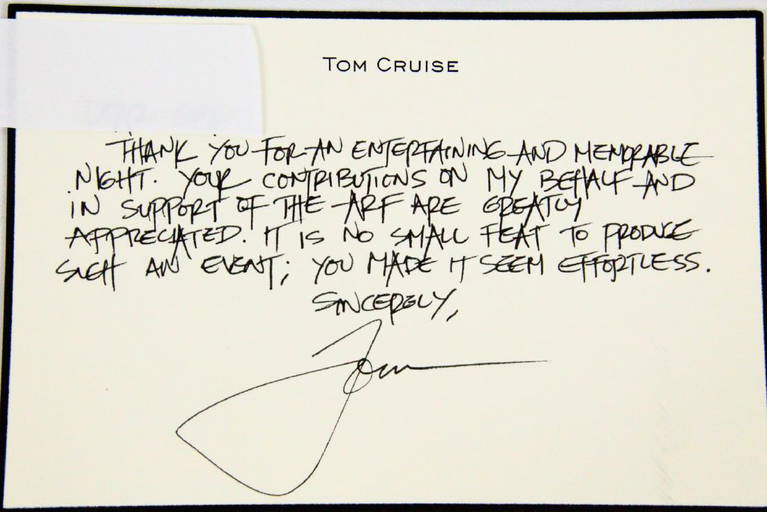 TOM CRUISE
THANK YOU FOR AN ENTERTAINING AND MEMORABLE
NIGHT. YOUR CONTRIBUTIONS ON MY BEHALF AND
IN SUPPORT OF THE ARF ARE GREATLY
APPRECIATED. IT IS NO SMALL FEAT TO PRODUCE
SUCH AN EVENT; YOU MADE IT SEEM EFFORTLESS.
SINCERELY,
Tom